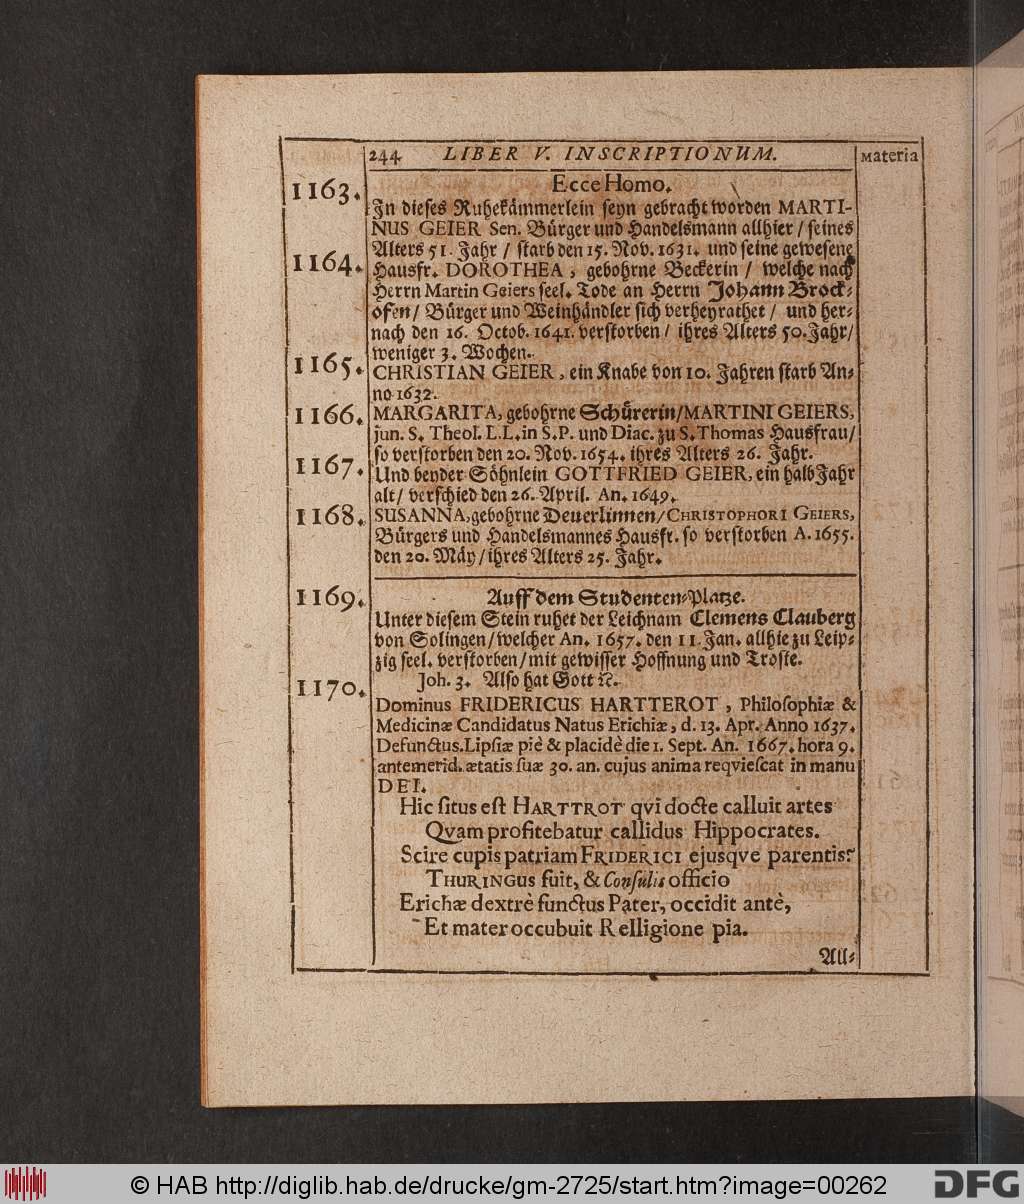 244 LIBER V. INSCRIPTIONUM. Materia
Ecce Homo.
1163. In dieses Ruhekämmerlein seyn gebracht worden MARTI-
NUS GEIER Sen. Bürger und Handelsmann allhier / seines
Alters 51. Jahr / starb den 15. Nov. 1631. und seine gewesene
1164. Hausfr. DOROTHEA, gebohrne Beckerin / welche nach
Herrn Martin Geiers seel. Tode an Herrn Johann Brock-
ofen / Bürger und Weinhändler sich verheyrathet / und her-
nach den 16. Octob. 1641. verstorben / ihres Alters 50. Jahr /
weniger 3. Wochen.
1165. CHRISTIAN GEIER, ein Knabe von 10. Jahren starb An-
no 1632.
1166. MARGARITA, gebohrne Schürerin / MARTINI GEIERS,
jun. S. Theol. L.L. in S.P. und Diac. zu S. Thomas Hausfrau /
so verstorben den 20. Nov. 1654. ihres Alters 26. Jahr.
1167. Und beyder Söhnlein GOTTFRIED GEIER, ein halb Jahr
alt / verschied den 26. April. An. 1649.
1168. SUSANNA, gebohrne Deuerlinnen / CHRISTOPHORI GEIERS,
Bürgers und Handelsmannes Hausfr. so verstorben A. 1655.
den 20. Mäy / ihres Alters 25. Jahr.
Auff dem Studenten-Platze.
1169. Unter diesem Stein ruhet der Leichnam Clemens Clauberg
von Solingen / welcher An. 1657. den 11. Jan. allhie zu Leip-
zig seel. verstorben / mit gewisser Hoffnung und Troste.
Joh. 3. Also hat Gott ꝛc.
1170. Dominus FRIDERICUS HARTTEROT, Philosophiæ &
Medicinæ Candidatus Natus Erichiæ, d. 13. Apr. Anno 1637.
Defunctus. Lipsiæ piè & placidè die 1. Sept. An. 1667. hora 9.
antemerid. ætatis suæ 30. an. cujus anima reqviescat in manu
DEI.
Hic situs est HARTTROT qvi docte calluit artes
Qvam profitebatur callidus Hippocrates.
Scire cupis patriam FRIDERICI ejusqve parentis?
THURINGus fuit, & Consulis officio
Erichæ dextrè functus Pater, occidit antè,
Et mater occubuit Relligione pia.
All-
© HAB http://diglib.hab.de/drucke/gm-2725/start.htm?image=00262
DFG